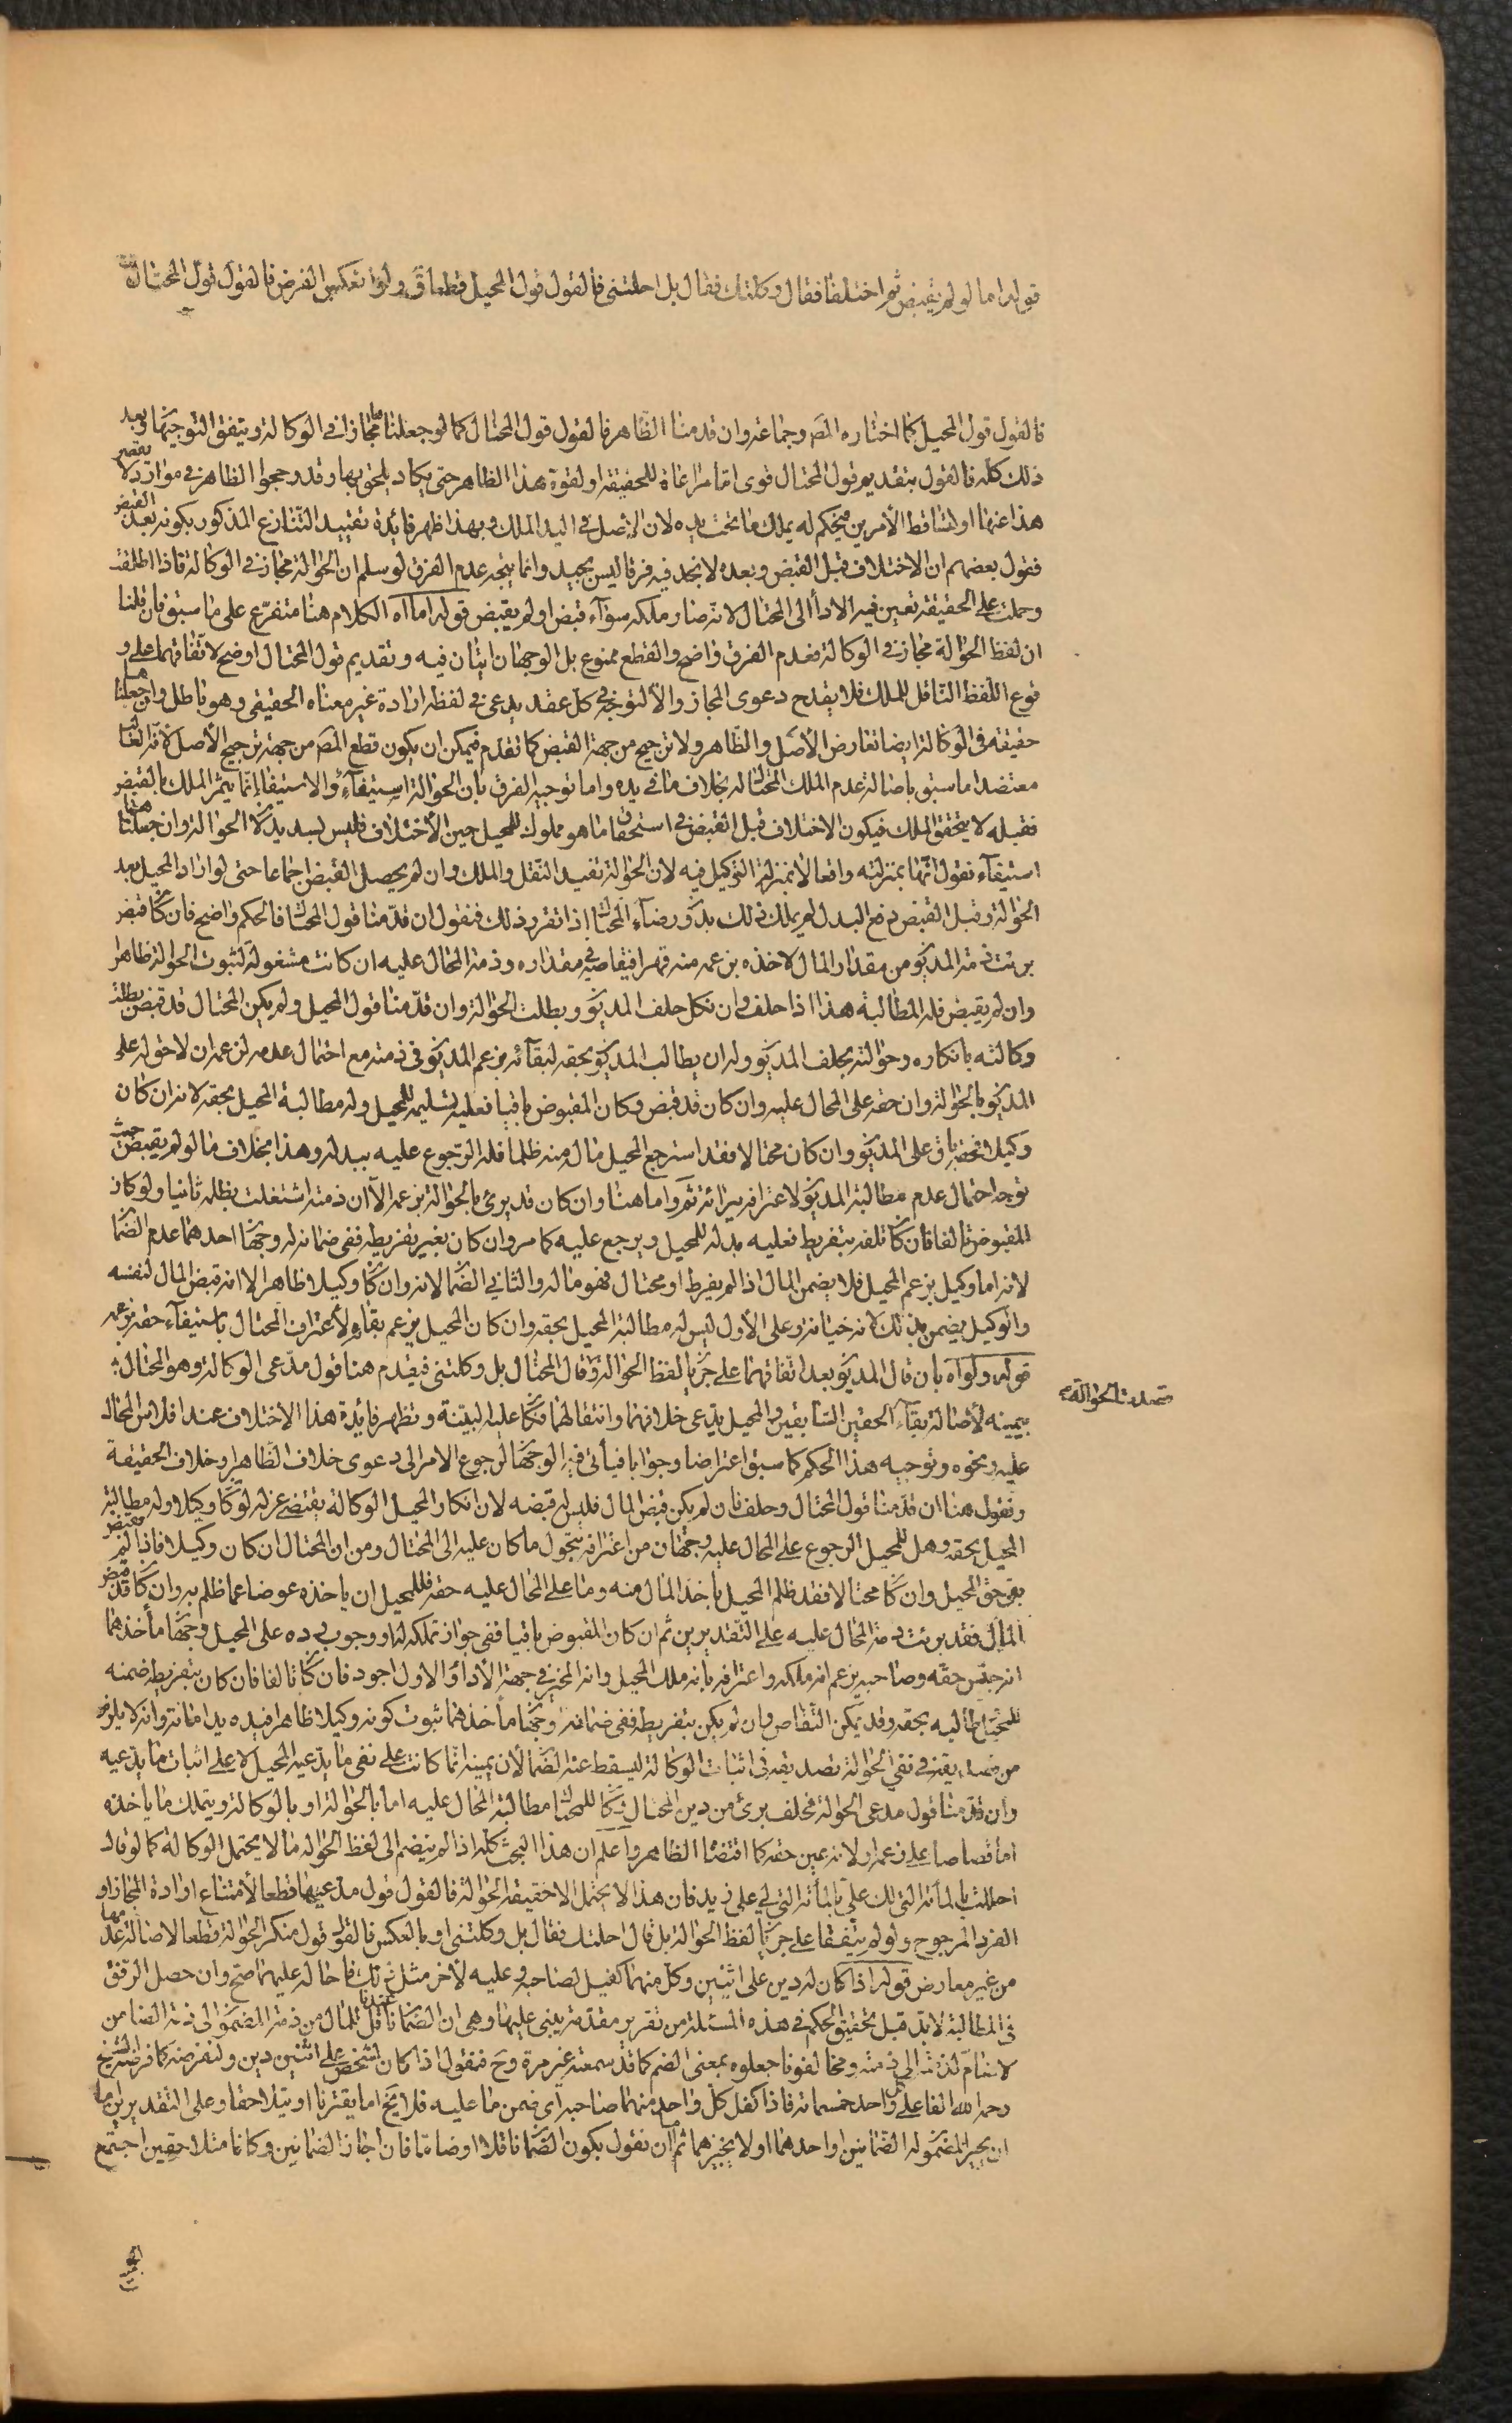 قوله اما لو لم يقبض ثم اختلفا فقال وكلتك فقال بل احلتنى فالقول قول المحيل قطعا ق ولو انعكس الفرض فالقول قول المحتال
فالقول قول المحيل كما اختاره المص وجماعة وان قدمنا الظاهر فالقول قول المحتال كما لو جعلناها مجازا في الوكالة ويتفق التوجيهان وبعد
ذلك كله فالقول بتقديم قول المحتال قوى اما مراعاة للحقيقة او لقوة هذا الظاهر حتى يكاد يلحق بها وقد رجحوا الظاهر في موارد لا يقصر
هذا عنها او لتساقط الأمرين فيحكم له بملك ما تحت يده لان الاصل في اليد الملك وبهذا ظهر فائدة تقييد التنازع المذكور بكونه بعد القبض
فقول بعضهم ان الاختلاف قبل القبض وبعده لا نجد فيه فرقا ليس بجيد وانما يتجه عدم الفرق لو سلم ان الحوالة مجاز في الوكالة فاذا اطلقت
وحملت على الحقيقة تعين فيه الأداء الى المحتال لانه صار ملكه سواء قبض او لم يقبض قوله اما اه الكلام هنا متفرع على ما سبق فان قلنا
ان لفظ الحوالة مجاز في الوكالة فعدم الفرق واضح والقطع ممنوع بل الوجهان اتيان فيه وتقديم قول المحتال اوضح لاتفاقهما على و
قوع اللفظ الناقل للملك فلا يقدح دعوى المجاز والا لتوجه في كل عقد يدعى في لفظه ارادة غير معناه الحقيقى وهو باطل وان جعلناها
حقيقة في الوكالة ايضا تعارض الأصل والظاهر ولا ترجيح من جهة القبض كما تقدم فيمكن ان يكون قطع المص من جهة ترجيح الأصل
معتضدا ما سبق باصالة عدم الملك المحتال له بخلاف ما في يده واما توجيه الفرق بان الحوالة استيفاء والاستيفاء انما يثمر الملك بالقبض
فقبله لا يتحقق الملك فيكون الاختلاف قبل القبض في استحقاق ما هو مملوك للمحيل حين الأختلاف فليس بسديد لان الحوالة وان جعلناها
استيفاء نقول انها بمنزلته واقعا لا بمنزلة التوكيل فيه لان الحوالة تفيد النقل والملك وان لم يحصل القبض اجماعا حتى لو اراد المحيل بعد
الحوالة وقبل القبض دفع البدل لم يملك ذلك بدون رضاء المحتال اذا تقرر ذلك فنقول ان قدمنا قول المحتال فالحكم واضح فان كان قبض
برئت ذمة المديون من مقدار المال لاخذه بزعمه منه قهرا فيقاصه في مقداره وذمة المحال عليه ان كانت مشغولة لثبوت الحوالة ظاهرا
وان لم يقبض فله المطالبة هذا اذا حلف وان نكل حلف المديون وبطلت الحوالة وان قدمنا قول المحيل ولم يكن المحتال قد قبض بطلت
وكالته بانكاره وحوالته بحلف المديون وله ان يطالب المديون بحقه لبقائه بزعم المديون في ذمته مع احتمال عدمه لزعمه ان لا حق له على
المديون بالحوالة وان حقه على المحال عليه وان كان قد قبض وكان المقبوض باقيا فعليه تسليمه للمحيل وله مطالبة المحيل بحقه لانه ان كان
وكيلا فحقه باق على المديون وان كان محتالا فقد استرجع المحيل ماله منه ظلما فله الرجوع عليه ببدله وهذا بخلاف ما لو لم يقبض حيث
توجه احتمال عدم مطالبة المديون لاعترافه ببرائته ثم واما هنا وان كان قد برئ بالحوالة بزعمه الا ان ذمته اشتغلت بظلمه ثانيا ولو كان
المقبوض تالفا فان كان تلفه بتفريط فعليه بدله للمحيل ويرجع عليه كما مر وان كان بغير تفريطه ففي ضمانه له وجهان احدهما عدم الضمان
لانه اما وكيل بزعم المحيل فلا يضمن المال اذا لم يفرط او محتال فهو ماله والثاني الضمان لانه وان كان وكيلا ظاهرا الا انه قبض المال لنفسه
والوكيل يضمن بذلك لانه خيانة وعلى الأول ليس له مطالبة المحيل بحقه وان كان المحيل يزعم بقاءه لأعتراف المحتال باستيفاء حقه بزعمه
قوله ولو اه بان قال المديون بعد اتفاقهما على جريان لفظ الحوالة وقال المحتال بل وكلتنى فيقدم هنا قول مدعى الوكالة وهو المحتال
قصدت الحوالة
بيمينه لأصالة بقاء الحقين السابقين والمحيل يدعى خلافهما وانتقالهما فكان عليه البينة وتظهر فائدة هذا الاختلاف عند افلاس المحال
عليه ونحوه وتوجيه هذا الحكم كما سبق اعتراضا وجوابا فيأتى فيه الوجهان لرجوع الامر الى دعوى خلاف الظاهر او خلاف الحقيقة
ونقول هنا ان قدمنا قول المحتال وحلف فان لم يكن قبض المال فليس له قبضه لان انكار المحيل الوكالة يقتضى عزله لو كان وكيلا وله مطالبة
المحيل بحقه وهل للمحيل الرجوع على المحال عليه وجهان من اعترافه بتحول ما كان عليه الى المحتال ومن ان المحتال ان كان وكيلا فاذا لم يقبض
بقى حق المحيل وان كان محتالا فقد ظلم المحيل باخذ المال منه وما على المحال عليه حقه فللمحيل ان ياخذه عوضا عما ظلم به وان كان قد قبض
المال فقد برئت ذمة المحال عليه على التقديرين ثم ان كان المقبوض باقيا ففي جواز تملكه له او وجوب رده على المحيل وجهان مأخذهما
انه جنس حقه وصاحبه يزعم انه ملكه واعترافه بانه ملك المحيل وانه المخير في جهة الأداء والاول اجود فان كان تالفا فان كان بتفريط ضمنه
للمحيل وطالبه بحقه وقد يمكن التقاص وان لم يكن بتفريطه ففي ضمانه وجهان مأخذهما ثبوت كونه وكيلا ظاهرا فيده يد امانة وانه لا يلزم
من تصديقه في نفي الحوالة تصديقه في اثبات الوكالة ليسقط عنه الضمان لأن يمينه انما كانت على نفي ما يدعيه المحيل لا على اثبات ما يدعيه
وان قدمنا قول مدعى الحوالة فحلف برئ من دين المحتال وكان للمحتال مطالبة المحال عليه اما بالحوالة او بالوكالة ويتملك ما ياخذه
اما قصاصا على زعمه او لانه عين حقه كما اقتضاه الظاهر واعلم ان هذا البحث كله اذا لم ينضم الى لفظ الحوالة ما لا يحتمل الوكالة كما لو قال
احلتك بالمأة التى لك على بالمأة التى لي على زيد فان هذا لا يحتمل الا حقيقة الحوالة فالقول قول مدعيها قطعا لأمتناع ارادة المجاز او
الفرد المرجوح ولو لم يتفقا على جريان لفظ الحوالة بل قال احلتك فقال بل وكلتنى او بالعكس فالقول قول منكر الحوالة قطعا لاصالة عدمها
من غير معارض قوله اذا كان له دين على اثنين وكل منهما كفيل لصاحبه وعليه لأخر مثل ذلك فاحاله عليهما صح وان حصل الرفق
في المطالبة لابد قبل تحقيق الحكم في هذه المسئلة من تقرير مقدمة يبنى عليها وهى ان الضمان عندنا ناقل للمال من ذمة المضمون الى ذمة الضامن
لا ضام لذمة الى ذمة ومخالفونا جعلوه بمعنى الضم كما قد سمعته غير مرة وح فنقول اذا كان لشخص على اثنين دين ولنفرضه كما فرضه الشيخ
رحمه الله الفا على كل واحد خمسمائة فاذا كفل كل واحد منهما صاحبه اى ضمن ما عليه فلا يخ اما يقترنا او يتلاحقا وعلى التقديرين اما
ان يجيز المضمون له الضمانين او احدهما او لا يجيزهما ثم اما ان نقول بكون الضمان ناقلا او ضاما فان اجاز الضمانين وكانا متلاحقين اجتمع